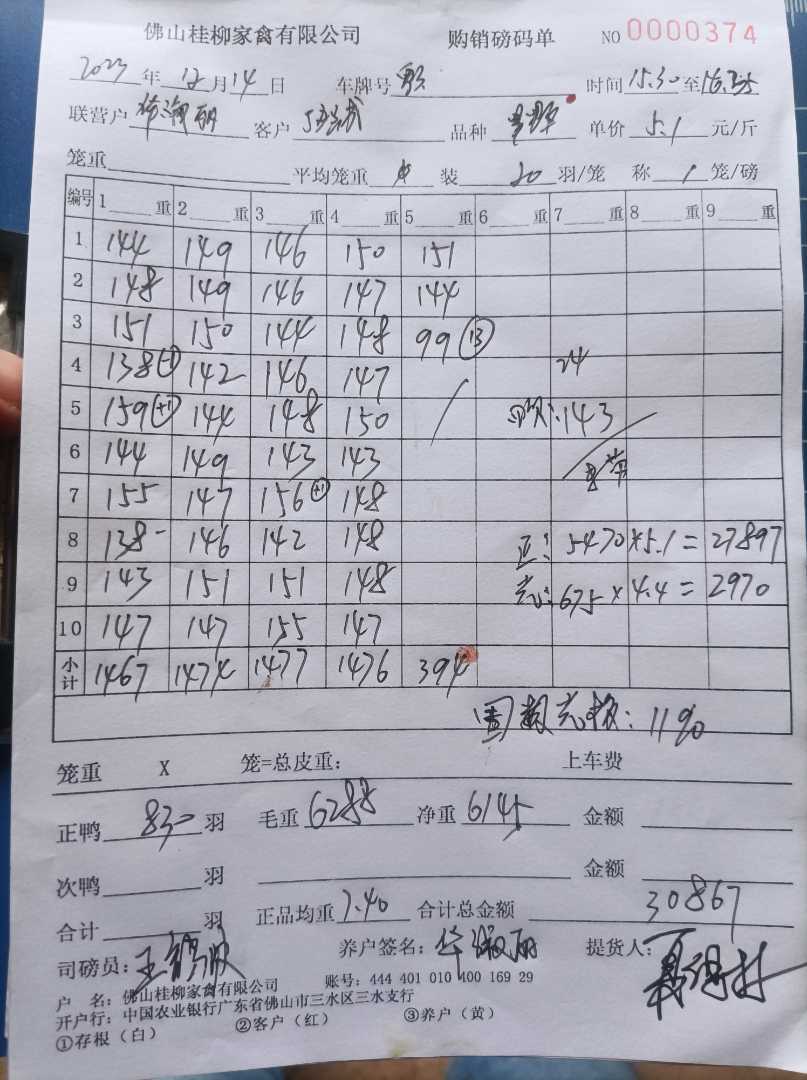 佛山桂柳家禽有限公司 购销磅码单 NO 0000374
2023年12月14日 车牌号 时间15.30至
联营户华淑丽 客户 品种 单价5.1元/斤
笼重 平均笼重 装20羽/笼 称1笼/磅
编号 1 重 2 重 3 重 4 重 5 重 6 重 7 重 8 重 9 重
1 144 149 146 150 151
2 148 149 146 147 144
3 151 150 144 148 99 (13)
4 138 (-1) 142 146 147 24
5 159 (+1) 144 148 150 143
6 144 149 143 143
7 155 147 156 (+1) 148
8 138- 146 142 148 正: 5470×5.1=27897
9 143 151 151 148 675×4.4=2970
10 147 147 155 147
小计 1467 1474 1477 1476 394
11%
笼重 X 笼=总皮重: 上车费
正鸭 830 羽 毛重 6288 净重 6145 金额
次鸭 羽 金额
合计 羽 正品均重 7.40 合计总金额 30867
司磅员: 养户签名: 华淑丽 提货人:
户 名: 佛山桂柳家禽有限公司 账号: 444 401 010 400 169 29
开户行: 中国农业银行广东省佛山市三水区三水支行
①存根（白） ②客户（红） ③养户（黄）